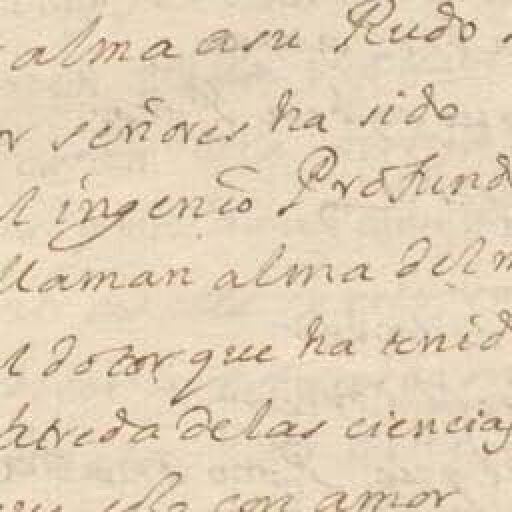 alma asu Rudo
señores ha sido
ingenio Profund
llaman alma del m
dotor que ha tenid
de las ciencias
con amor